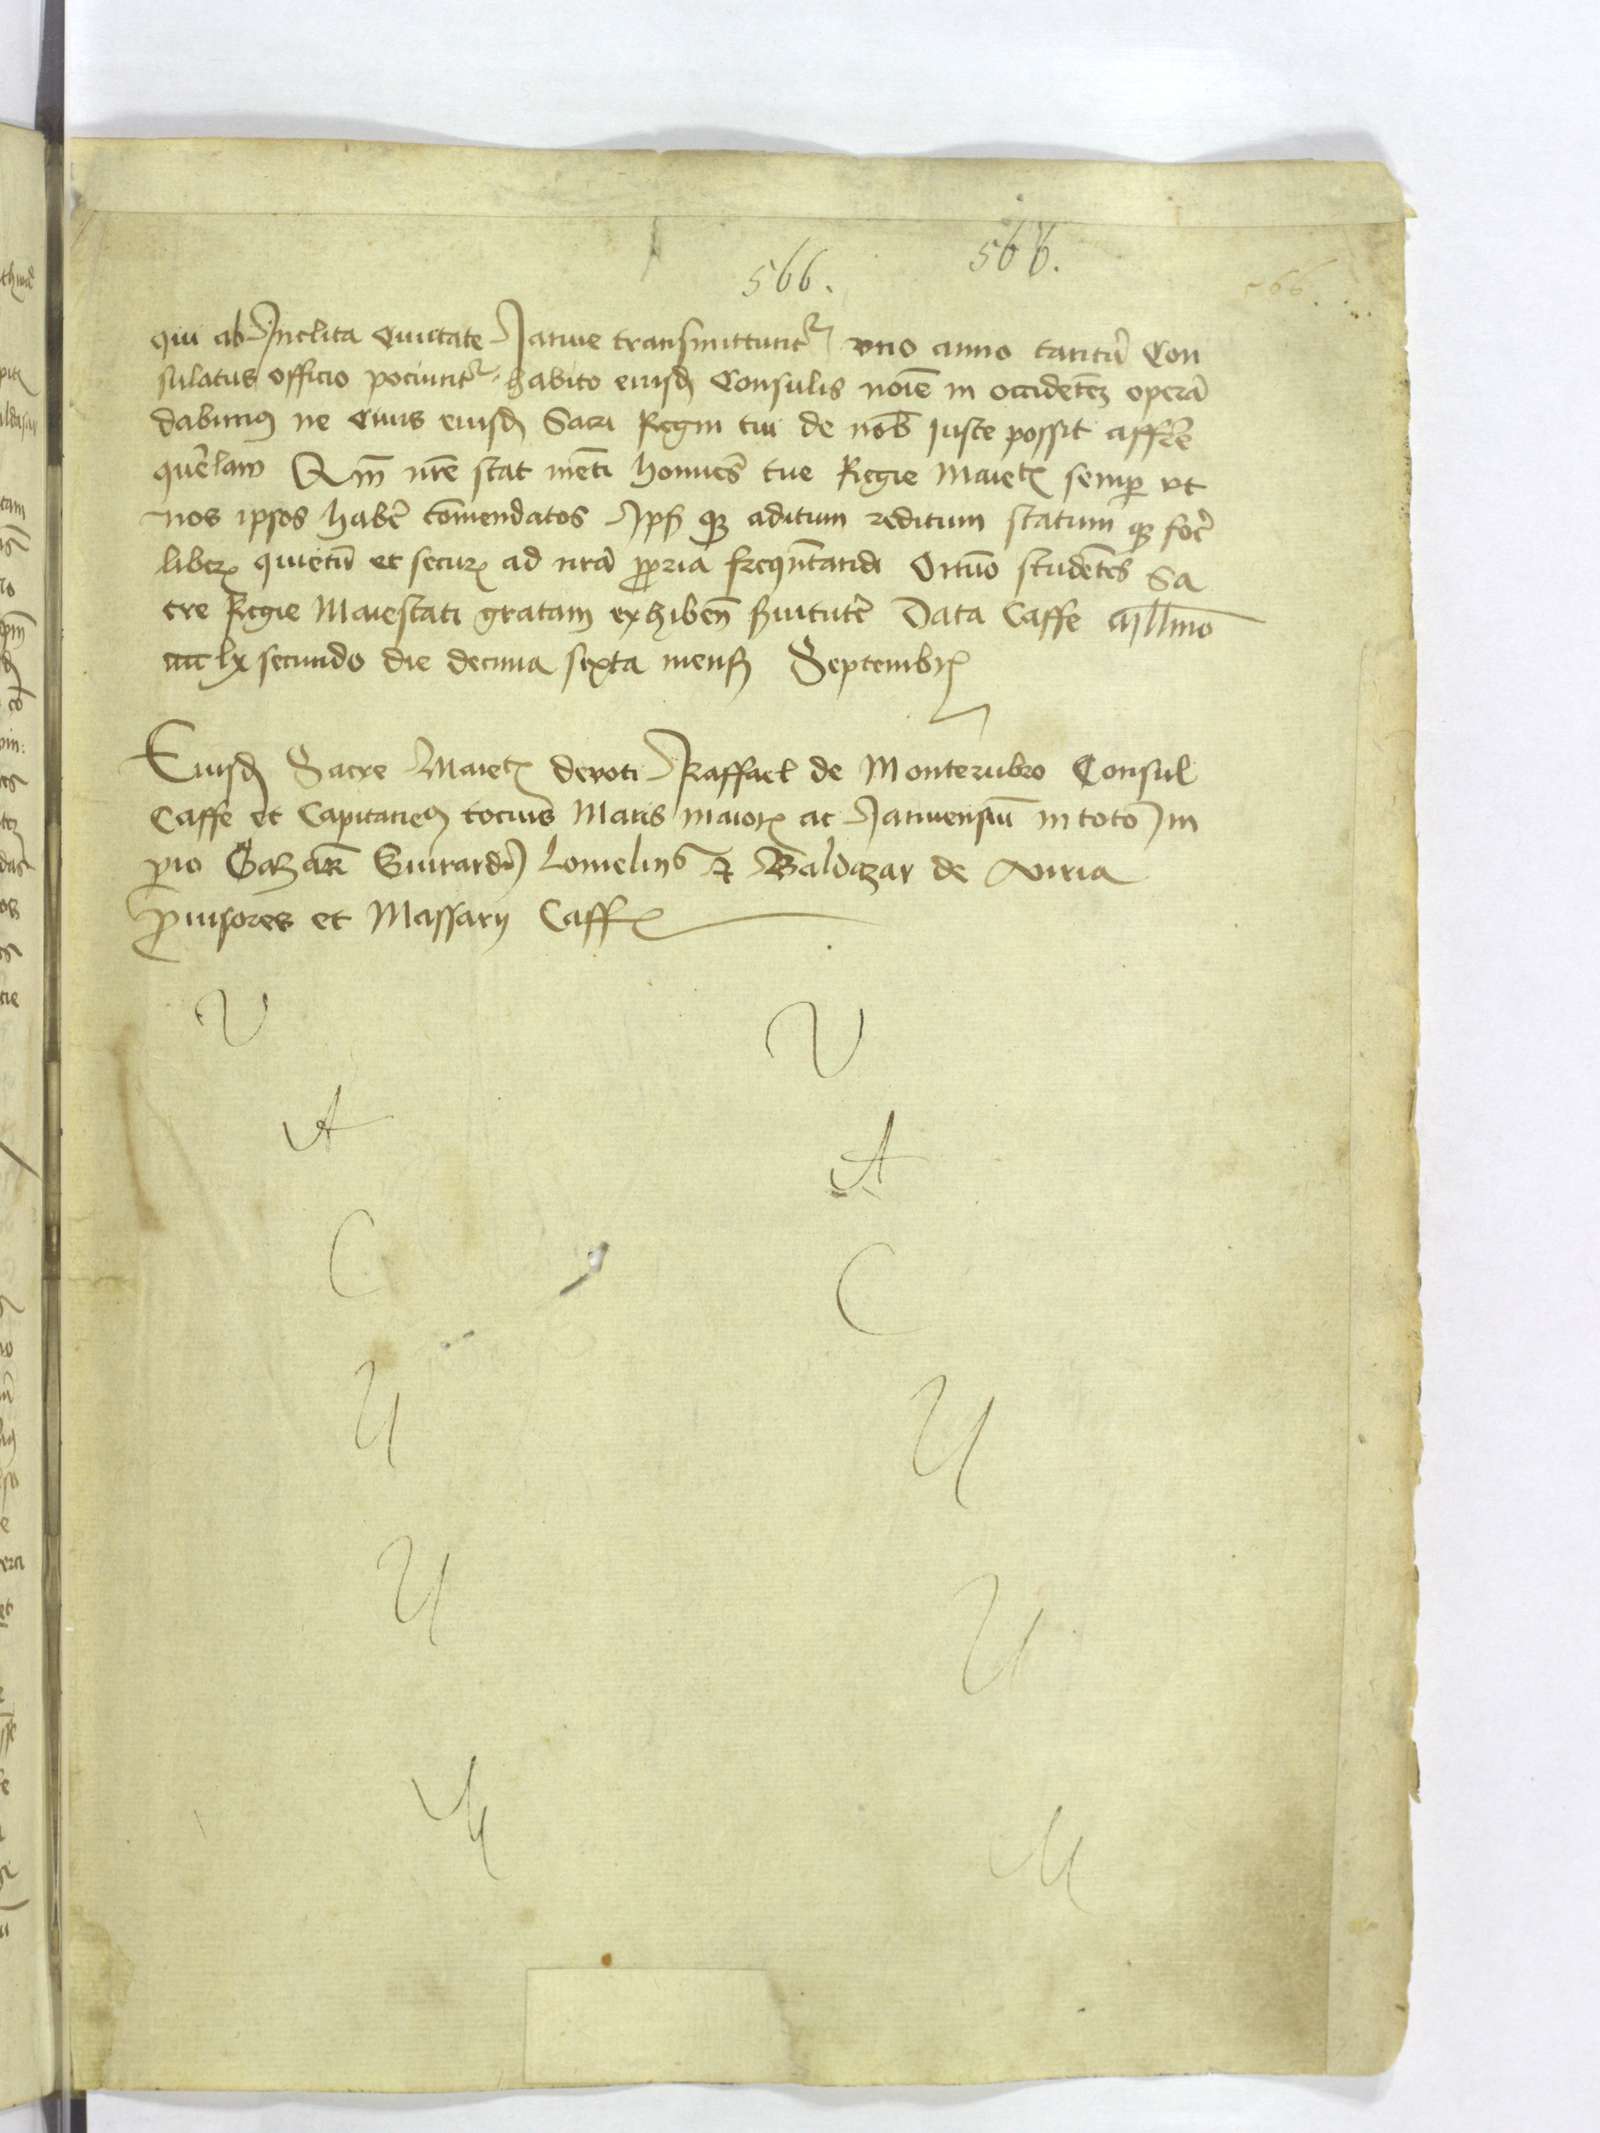 566. 566. 566.
qui ab Inclita Ciuitate Janue transmittunt᷑ vno anno tantū Con
sulatus officio pociunt᷑. habito eiusd̄ Consulis noīe in occidetēz operā
dabimus ne Ciuis eiusd̄ Sacri Regni tui de nob̄ iuste possit affer̄e
quer̄elam Qm̄ nr̄e stat mēti homīes tue Regie Maietꝭ semꝑ vt
nos ipsos haber̄e com̄endatos Ipsi qꝫ aditum reditum statum qꝫ for̄e
liberꝝ quietū et securꝝ ad nr̄ā ꝓpria freqūntandi Ortūo studētes Sa
cre Regie Maiestati gratam exhiben̄ Seruitutē Data Caffe Millmo
cccc lx secundo die decima sexta mensis Septembrꝭ
Eiusd̄ Sacre Maietꝭ deuoti Raffael de Monterubro Consul
Caffe et Capitaneus tocius Maris maiorꝭ ac Januensiū in toto Im
perio Gazarie Guirardus Lomelinus et Baldazar de Auria
Prouisores et Massarij Caffe
V V
A A
C C
U U
U U
M M